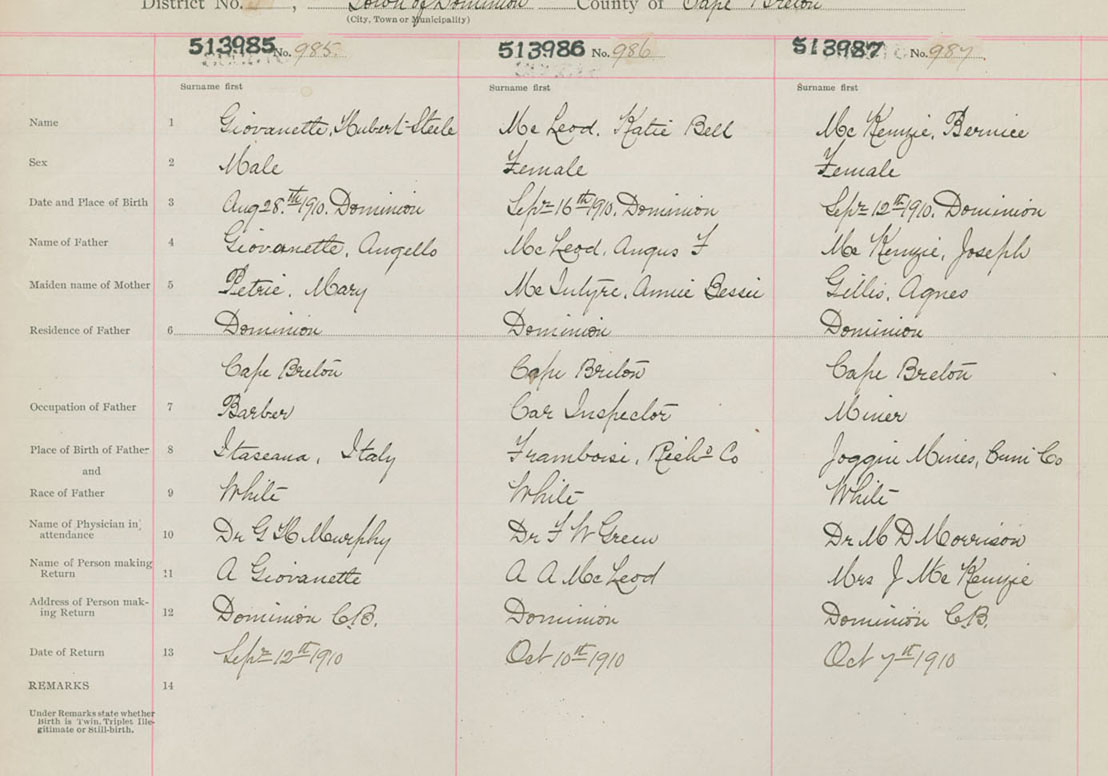 District No. , Town of Dominion County of Cape Breton
(City, Town or Municipality)
513985 No. 985 513986 No. 986 513987 No. 987
Surname first Surname first Surname first
Name 1 Giovanette, Hubert Steele Mc Leod, Katie Bell Mc Kenzie, Bernice
Sex 2 Male Female Female
Date and Place of Birth 3 Aug 28th 1910. Dominion Sepr 16th 1910. Dominion Sepr 12th 1910. Dominion
Name of Father 4 Giovanette, Angello Mc Leod, Angus F Mc Kenzie, Joseph
Maiden name of Mother 5 Petrie, Mary Mc Intyre, Annie Bessie Gillis, Agnes
Residence of Father 6 Dominion Dominion Dominion
Cape Breton Cape Breton Cape Breton
Occupation of Father 7 Barber Car Inspector Miner
Place of Birth of Father 8 Itaseana, Italy Framboise, Richd Co Joggin Mines, Cum Co
and
Race of Father 9 White White White
Name of Physician in attendance 10 Dr G H Murphy Dr F W Green Dr M D Morrison
Name of Person making Return 11 A Giovanette A A Mc Leod Mrs J Mc Kenzie
Address of Person mak-ing Return 12 Dominion C.B. Dominion Dominion C.B.
Date of Return 13 Sepr 12th 1910 Oct 10th 1910 Oct 7th 1910
REMARKS 14
Under Remarks state whether
Birth is Twin, Triplet Ille-
gitimate or Still-birth.